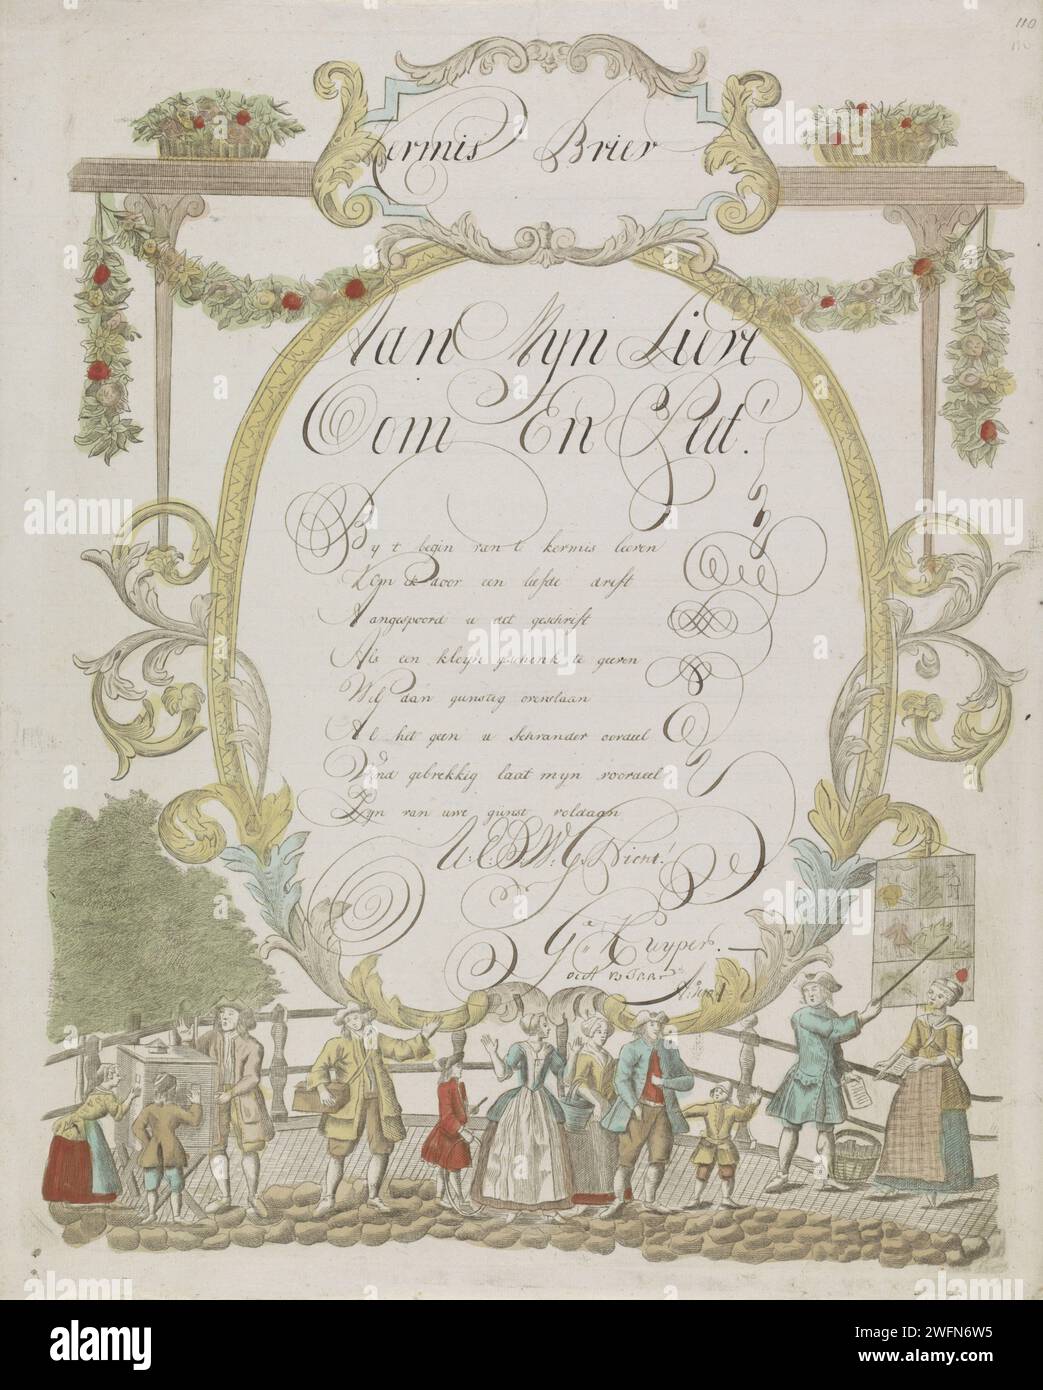 110
110
Kermis Brief
Aan Myn Lieve
Oom En Put!
By t begin van te kermis leeven
Kom ik door een liefde drift
Aangespoord u dit geschrift
Als een kleyn geschenk te geeven
Wilt dan gunstig overslaan
Al het geen u schrander oordeel
Vind gebrekkig laat myn voordeel
Zyn van uwe gunst voldaan
U: E: D: W: G: Dienr!
G: Kuyper.
oudt 13 Jaar
alamy
Image ID: 2WFN6W5
www.alamy.com